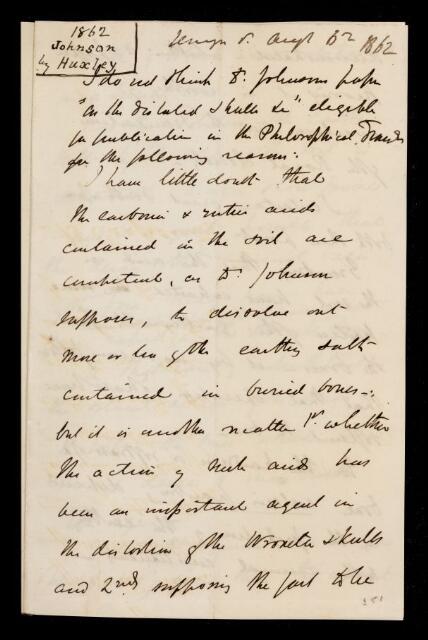 1862
Johnson
by Huxley
Augt 1862
I do not think Dr. Johnson's paper
"On the distorted skulls &c" eligible
for publication in the Philosophical Transns
for the following reasons:
I have little doubt that
the carbonic & nitric acids
contained in the soil are
competent, as Dr. Johnson
supposes, to dissolve out
more or less of the earthy salts
contained in buried bones—:
but it is another matter 1st whether
the action of such acids has
been an important agent in
the distortion of the Wroxeter skulls
and 2ndly supposing the fact to be